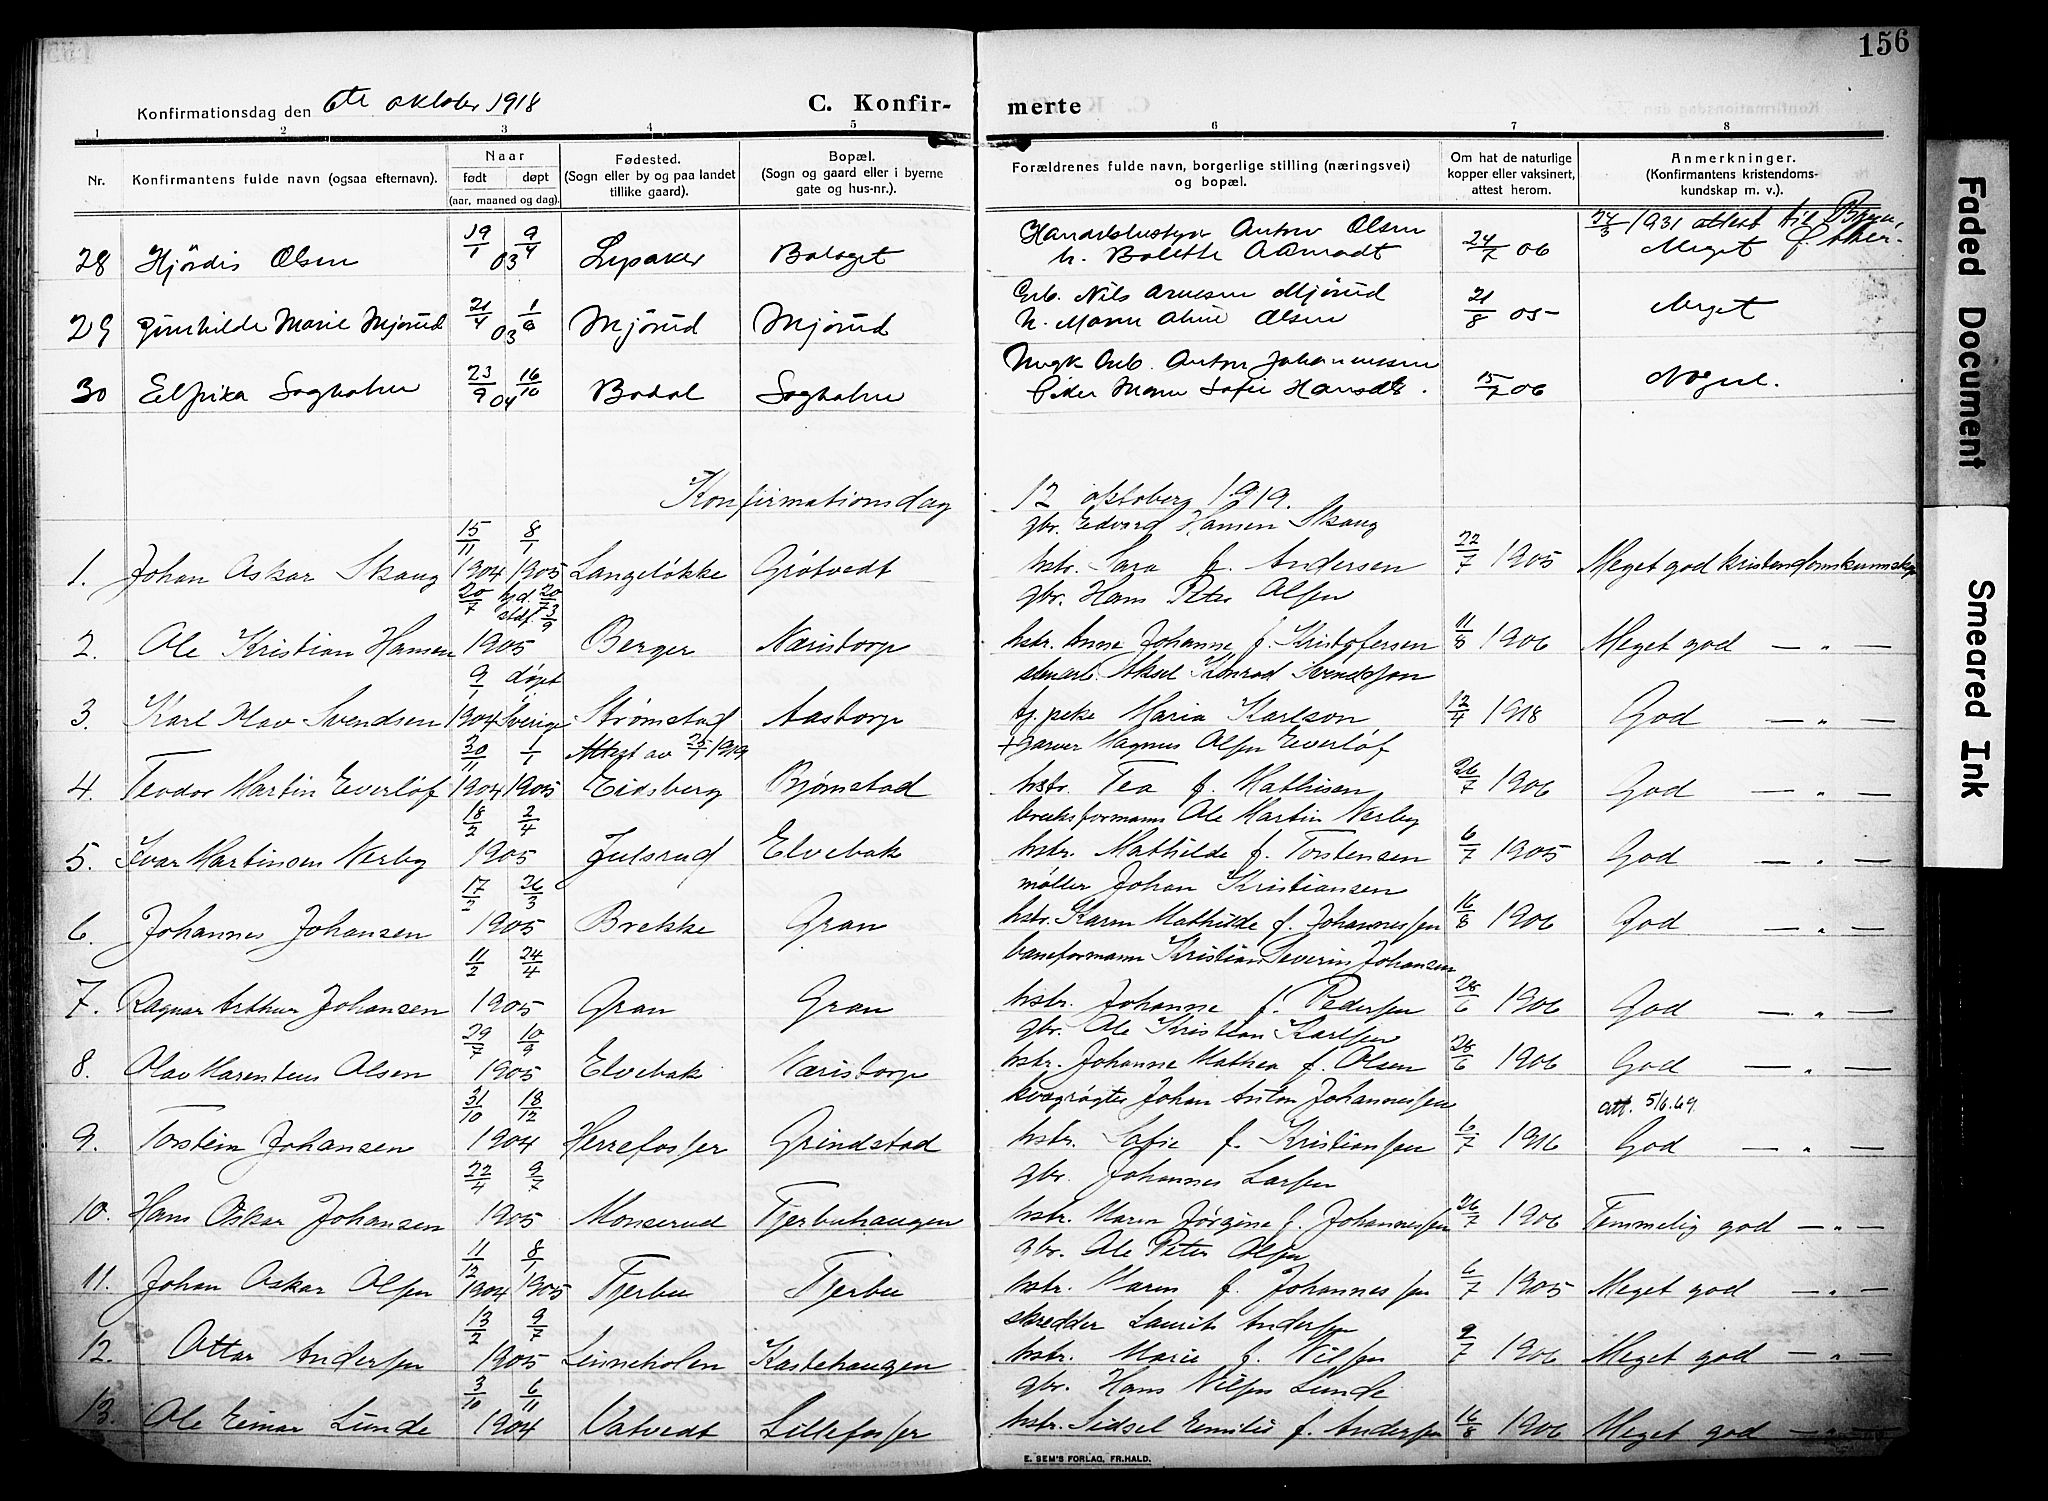 156
Konfirmationsdag den 6te oktober 1918
C. Konfir-
merte
1 2 3 4 5 6 7 8
Nr.
Konfirmantens fulde navn (ogsaa efternavn).
Naar
født døpt
(aar, maaned og dag).
Fødested.
(Sogn eller by og paa landet
tillike gaard).
Bopæl.
(Sogn og gaard eller i byerne
gate og hus-nr.).
Forældrenes fulde navn, borgerlige stilling (næringsvei)
og bopæl.
Om hat de naturlige
kopper eller vaksinert,
attest herom.
Anmerkninger.
(Konfirmantens kristendoms-
kundskap m. v.).
19/1 9/4 Anton Olsen 24/3 1931 attest til
28 Hjördis Olsen 03 24/7 06 Meget
21/4 1/6 Arb. Nils Mjørud
29 Gunhilde Marie Mjørud 03 Mjørud Mjørud Olsen 21/8 05 Meget
Arb. Anton Johannessen
30 23/9 16/10 04 Bodal Sofie 15/7 06 Nogenl.
Konfirmationsdag 12 oktober 1919.
15/11 8/1 gbr. Edvard Hansen Skaug
1. Johan Oskar Skaug 1904 1905 Langeløkke Grøtvedt hstr. Sara f. Andersen 22/7 1905 Meget god kristendomskunnskap
20/7 hjd. 20/7 stdf. 3/9 gbr. Hans Peter Olsen
2. Ole Kristian Hansen 1905 Berger Næristorp hstr. Anne Johanne f. Kristofersen 11/8 1906 Meget god — „ —
9/1 døpt i Aksel Konrad Svendsson
3. Karl Olav Svendsen 1904 Sverige Strømstad Aastorp tj.peke Maria Karlson 12/4 1918 God — „ —
30/11 1/1 Attest av 25/1 1919 + garver Magnus Olsen Everløf
4. Teodor Martin Everløf 1904 1905 Eidsberg Bjørnstad hstr. Tea f. Mathisen 26/7 1906 God — „ —
18/2 2/4 bruksformann Ole Martin Nerby
5. Ivar Martinsen Nerby 1905 Julsrud Elvebak hstr. Mathilde f. Torstensen 6/7 1905 God — „ —
17/2 26/3 møller Johan Kristiansen
6. Johannes Johansen 1905 Brekke Gran hstr. Karen Mathilde f. Johannessen 16/8 1906 God — „ —
11/2 24/4 baneformann Kristian Severin Johansen
7. Ragnar Arthur Johansen 1905 Gran Gran hstr. Johanne f. Pedersen 28/6 1906 God — „ —
29/7 10/9 gbr. Ole Kristian Karlsen
8. Olav Marentius Olsen 1905 Elvebak Næristorp hstr. Johanne Mathea f. Olsen 28/6 1906 God — „ —
31/10 18/12 kvægrøgter Johan Anton Johannessen att. 5/6.69.
9. Torstein Johansen 1904 Herrefosser Grindstad hstr. Sofie f. Kristianssen 6/7 1916 God — „ —
22/4 9/7 gbr. Johannes Larsen
10. Hans Oskar Johansen 1905 Monserud Tjerbuhaugen hstr. Maren Jørgine f. Johannessen 26/7 1906 Temmelig god — „ —
11/12 8/1 gbr. Ole Peter Olsen
11. Johan Oskar Olsen 1904 1905 Tjerbu Tjerbu hstr. Maren f. Johannessen 6/7 1905 Meget god — „ —
13/2 9/7 skredder Laurits Andersen
12. Ottar Andersen 1905 Linneholen Kastehaugen hstr. Marie f. Nilsen 9/7 1906 Meget god — „ —
3/10 6/11 gbr. Hans Nilsen Lunde
13. Ole Einar Lunde 1904 Vatvedt Lillefosser hstr. Sidsel Emilie f. Andersen 16/8 1906 Meget god — „ —
E. SEM'S FORLAG, FR.HALD.
Faded Document
Smeared Ink